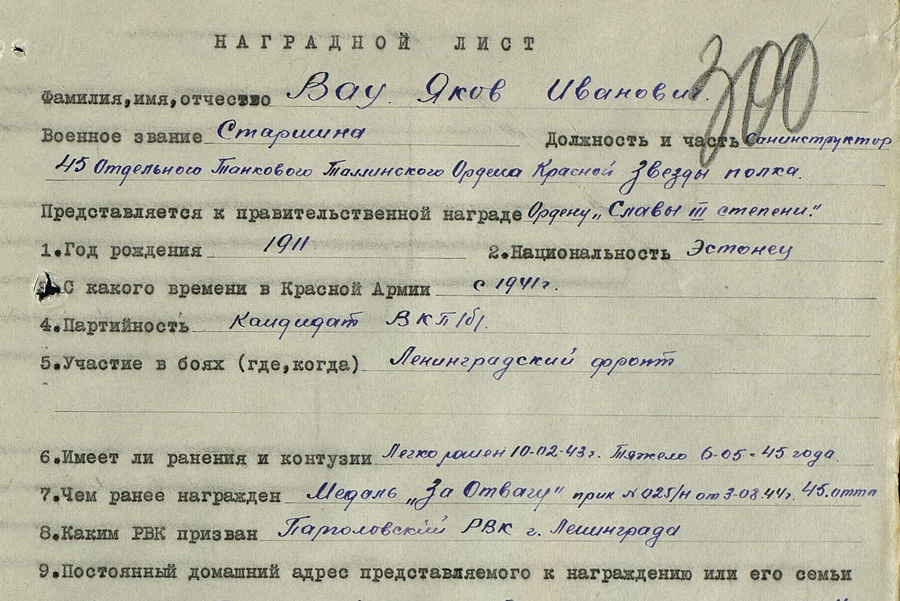 НАГРАДНОЙ ЛИСТ
300
Фамилия,имя,отчество Вау Яков Иванович.
Военное звание Старшина Должность и часть Санинструктор
45 Отдельного Танкового Таллинского Ордена Красной Звезды полка.
Представляется к правительственной награде Ордену „Славы III степени."
1.Год рождения 1911 2.Национальность Эстонец
3.С какого времени в Красной Армии с 1941г.
4.Партийность Кандидат ВКП/б/.
5.Участие в боях (где,когда) Ленинградский фронт
6.Имеет ли ранения и контузии Легко ранен 10-02-43г. Тяжело 6-05-45 года.
7.Чем ранее награжден Медаль „За Отвагу" прик N 025/н от 3-03.44г. 45.оттп
8.Каким РВК призван Парголовский РВК г. Ленинграда
9.Постоянный домашний адрес представляемого к награждению или его семьи